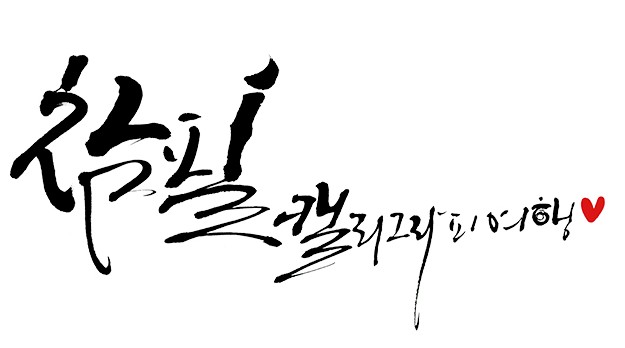 참필 캘리그라피 여행